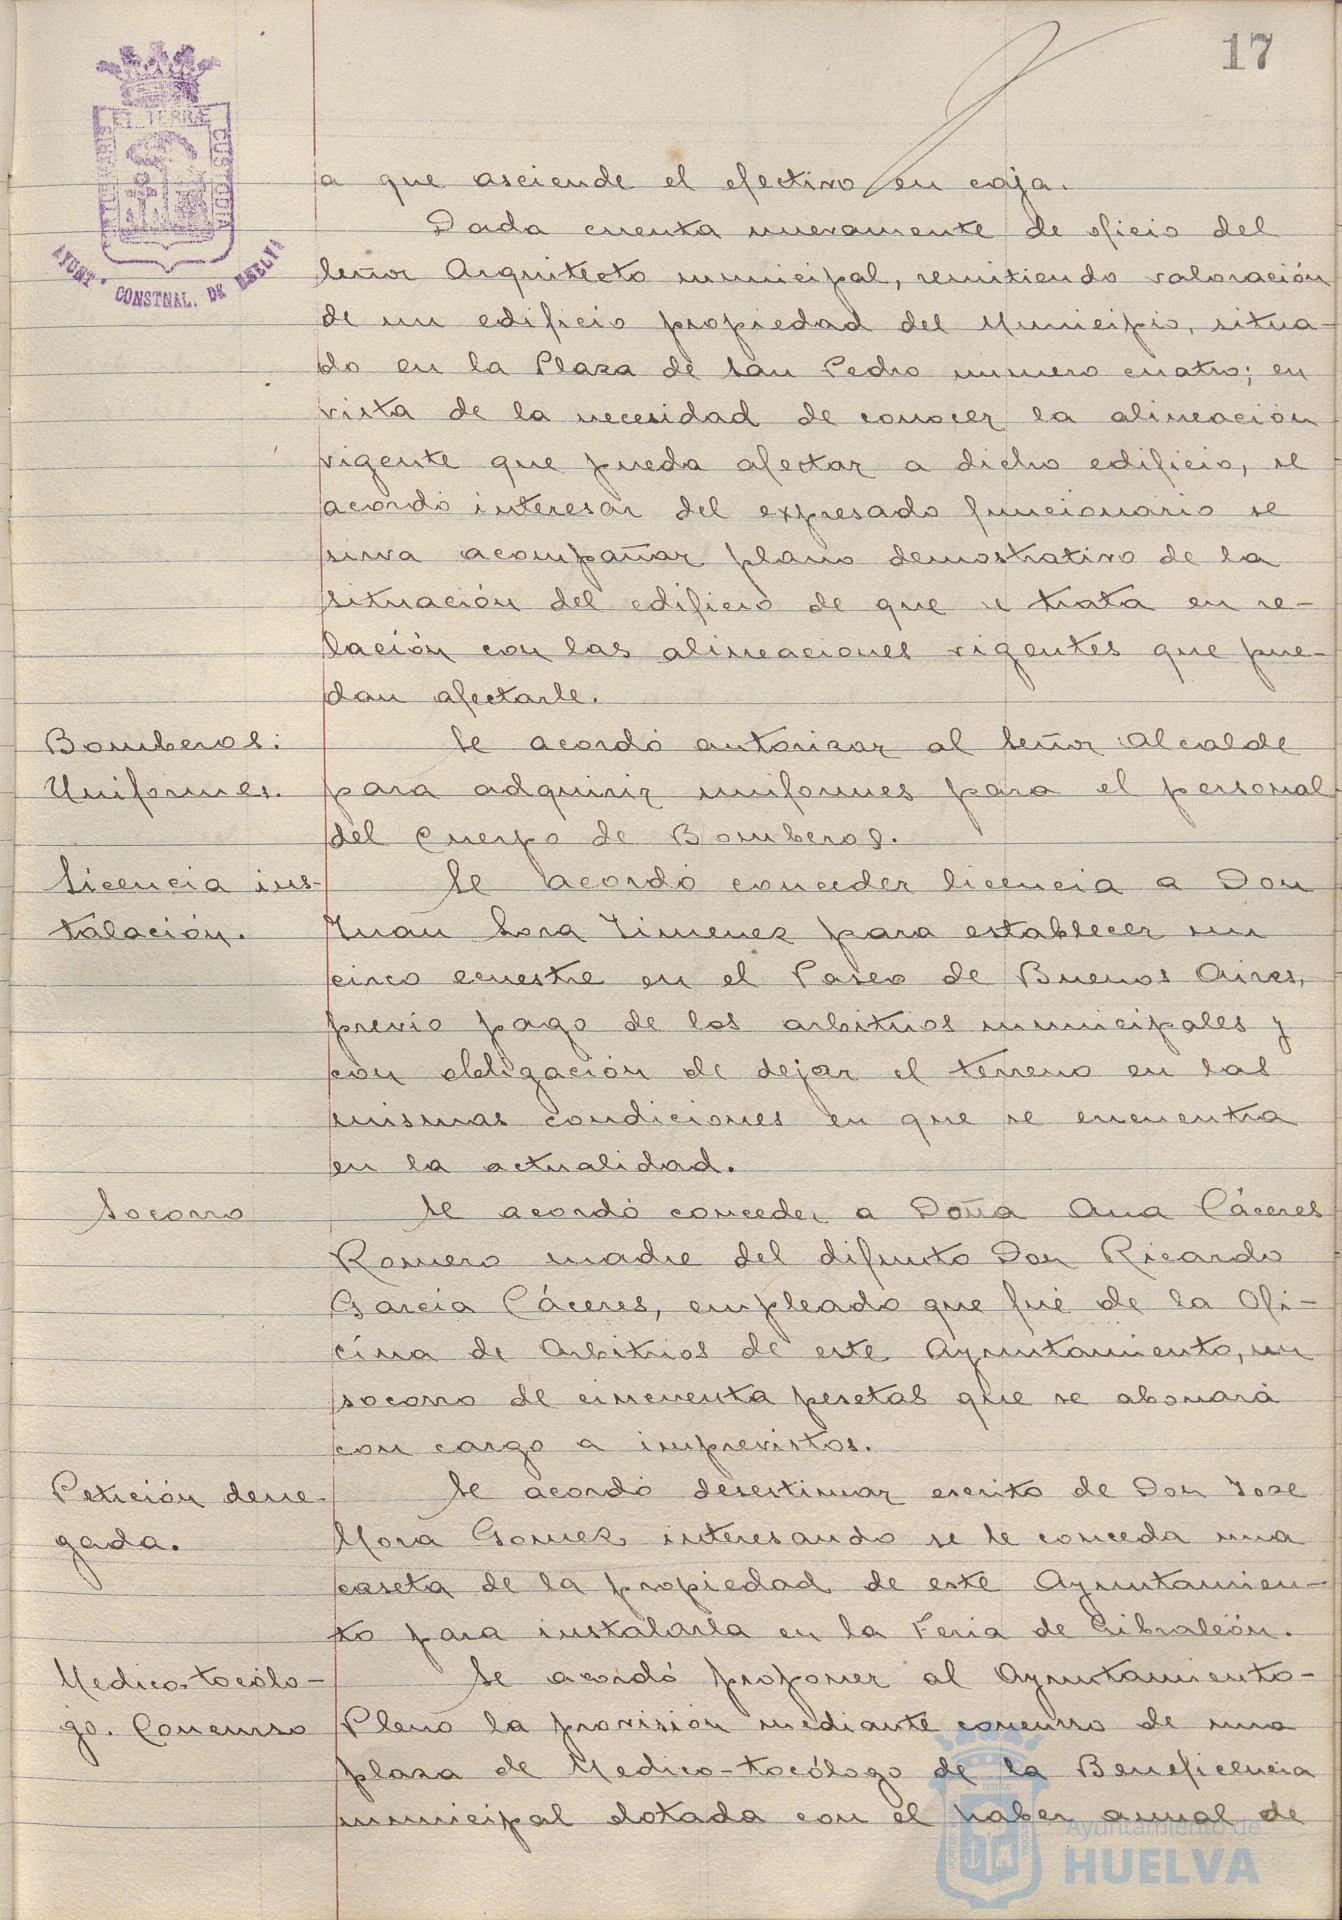 17
PORTUS MARIS
ET TERRÆ
CUSTODIA
AYUNT. CONSTNAL. DE HUELVA
a que asciende el efectivo en caja.
Dada cuenta nuevamente de oficio del
Señor Arquitecto municipal, remitiendo valoración
de un edificio propiedad del Municipio, situa-
do en la Plaza de San Pedro numero cuatro; en
vista de la necesidad de conocer la alineación
vigente que pueda afectar a dicho edificio, se
acordó interesar del expresado funcionario se
sirva acompañar plano demostrativo de la
situación del edificio de que se trata en re-
lación con las alineaciones vigentes que pue-
dan afectarle.
Bomberos:
Uniformes.
Se acordó autorizar al Señor Alcalde
para adquirir uniformes para el personal
del Cuerpo de Bomberos.
Licencia ins-
talación.
Se acordó conceder licencia a Don
Juan Lora Jimenez para establecer un
circo ecuestre en el Paseo de Buenos Aires,
previo pago de los arbitrios municipales y
con obligación de dejar el terreno en las
mismas condiciones en que se encuentra
en la actualidad.
Socorro
Se acordó conceder a Doña Ana Cáceres
Romero madre del difunto Don Ricardo
García Cáceres, empleado que fué de la Ofi-
cina de Arbitrios de este Ayuntamiento, un
socorro de cincuenta pesetas que se abonará
con cargo a imprevistos.
Petición dene-
gada.
Se acordó desestimar escrito de Don Jose
Mora Gomez interesando se le conceda una
caseta de la propiedad de este Ayuntamien-
to para instalarla en la Feria de Gibraleón.
Medico-tocólo-
go. Concurso
Se acordó proponer al Ayuntamiento-
Pleno la provisión mediante concurso de una
plaza de Medico-tocólogo de la Beneficencia
municipal dotada con el haber anual de
Ayuntamiento de
HUELVA